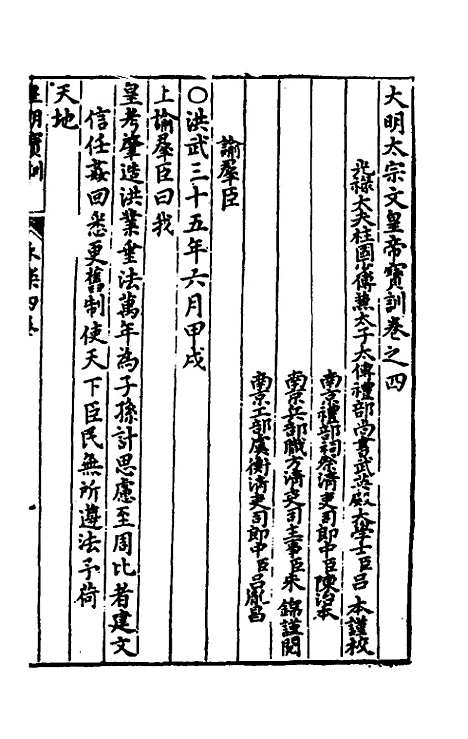 大明太宗文皇帝寶訓卷之四
光祿大夫柱國少傅兼太子太傅禮部尚書武英殿大學士臣呂 本謹校
南京禮部祠祭清吏司郎中臣陳治本
南京兵部職方清吏司主事臣朱 錦謹閱
南京工部虞衡清吏司郎中臣呂胤昌
諭羣臣
○洪武三十五年六月甲戌
上諭羣臣曰我
皇考肇造洪業垂法萬年為子孫計思慮至周比者建文
信任姦回悉更舊制使天下臣民無所遵法予荷
天地
皇明寶訓 永樂四卷